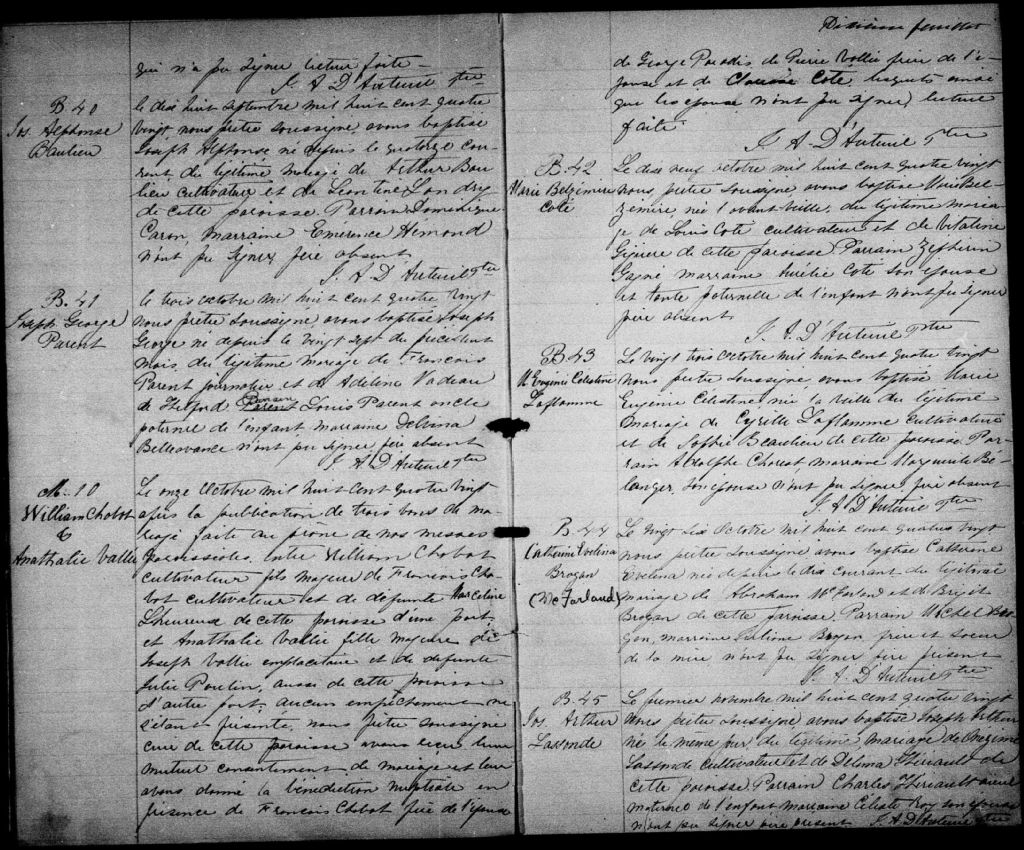 qui n'a pu signer lecture faite
J. A D'Auteuil Ptre
B. 40
Jos. Alphonse
Baulieu
le dix huit Septembre mil huit cent quatre
vingt nous prêtre soussigné avons baptisé
Joseph Alphonse né depuis le quatorze cou-
rant du légitime mariage de Arthur Bau
lieu cultivateur et de Leontine Landry
de cette paroisse. Parrain Dominique
Caron, Marraine Emerence Hemond
n'ont pu signer père absent
J. A D'Auteuil Ptre
B. 41
Joseph George
Parent
le trois octobre mil huit cent quatre vingt
nous prêtre soussigné avons baptisé Joseph
George né depuis le vingt sept du précédent
mois, du légitime mariage de Francois
Parent journalier et de Adeline Nadeau
de Thetford Parrain
Parent Louis Parent oncle
paternel de l'enfant marraine Delvina
Bellavance n'ont pu signer, père absent
J. A D'Auteuil Ptre
M. 10
William Chobot
&
Anathalie Vallié
Le onze Octobre mil huit cent quatre vingt
après la publication de trois bans de ma-
riage faite au prône de nos messes
paroissiales. Entre William Chobot
cultivateur fils majeur de Francois Cho
bot cultivateur et de defunte Marceline
Lheureux de cette paroisse d'une part
et Anathalie Vallié fille majeure de
Joseph Vallié emplacitaire et de defunte
Julie Poulin, aussi de cette paroisse
d'autre part; aucun empêchement ne
s'étant présenté, nous prêtre soussigné
curé de cette paroisse avons recu leur
mutuel consentement de mariage et leur
avons donné la bénédiction nuptiale en
présence de Francois Chobot père de l'époux
feuillet
de George Paradis de Pierre Vallié frère de l'é-
pouse et de Clarisse Coté, lesquels ainsi
que les epoux n'ont pu signer, lecture
faite
J. A-D'Auteuil Ptre
B. 42
Marie Belzemire
Coté
Le dix neuf octobre mil huit cent quatre vingt
nous, prêtre soussigné avons baptisé Marie Bel-
zemire née l'avant veille, du légitime maria-
ge de Louis Coté cultivateur et de Vitaline
Giguere de cette paroisse Parrain Zepherin
Gagné marraine Aurélie Coté son épouse
et tante paternelle de l'enfant n'ont pu signer
père absent
J. A. D'Auteuil Ptre
B. 43
M Eugenie Celestine
Laflamme
Le vingt trois Octobre mil huit cent quatre vingt
Nous prêtre soussigné avons baptisé Marie
Eugenie Celestine née la veille du légitime
mariage de Cyrille Laflamme Cultivateur
et de Sophie Beaulieu de cette paroisse Par-
rain Adolphe Chorest marraine Marguerite Bé-
langer, son épouse n'ont pu signer père absent
J. A D'Auteuil Ptre
B. 44
Catherine Evelina
Brogan
(McFarland)
Le vingt six Octobre mil huit cent quatre vingt
nous prêtre soussigné avons baptisé Catherine
Evelina née depuis le dix courant du légitime
mariage de Abraham McFarland et de Brigit
Brogan de cette paroisse, Parrain Michel Bro-
gan, marraine Brogan frère et soeur
de la mère n'ont pu signer père présent
J. A. D'Auteuil Ptre
B. 45
Jos. Arthur
Lassonde
Le premier novembre mil huit cent quatre vingt
Nous prêtre soussigné avons baptisé Joseph Arthur
né le même jour, du légitime mariage de Onezime
Lassonde cultivateur et de Delima Thériault de
cette paroisse Parrain Charles Thériault aieul
maternel de l'enfant marraine Céleste Roy son épouse
n'ont pu signer père présent J. A D'Auteuil Ptre